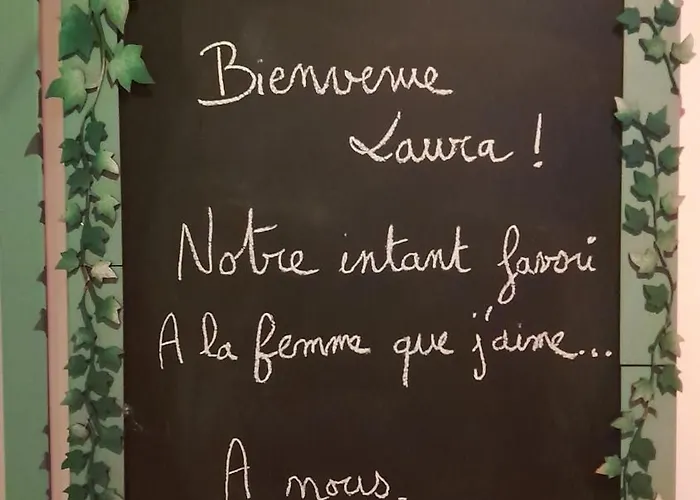 Bienvenue
Laura !
Notre intant favori
A la femme que j'aime...
A nous.